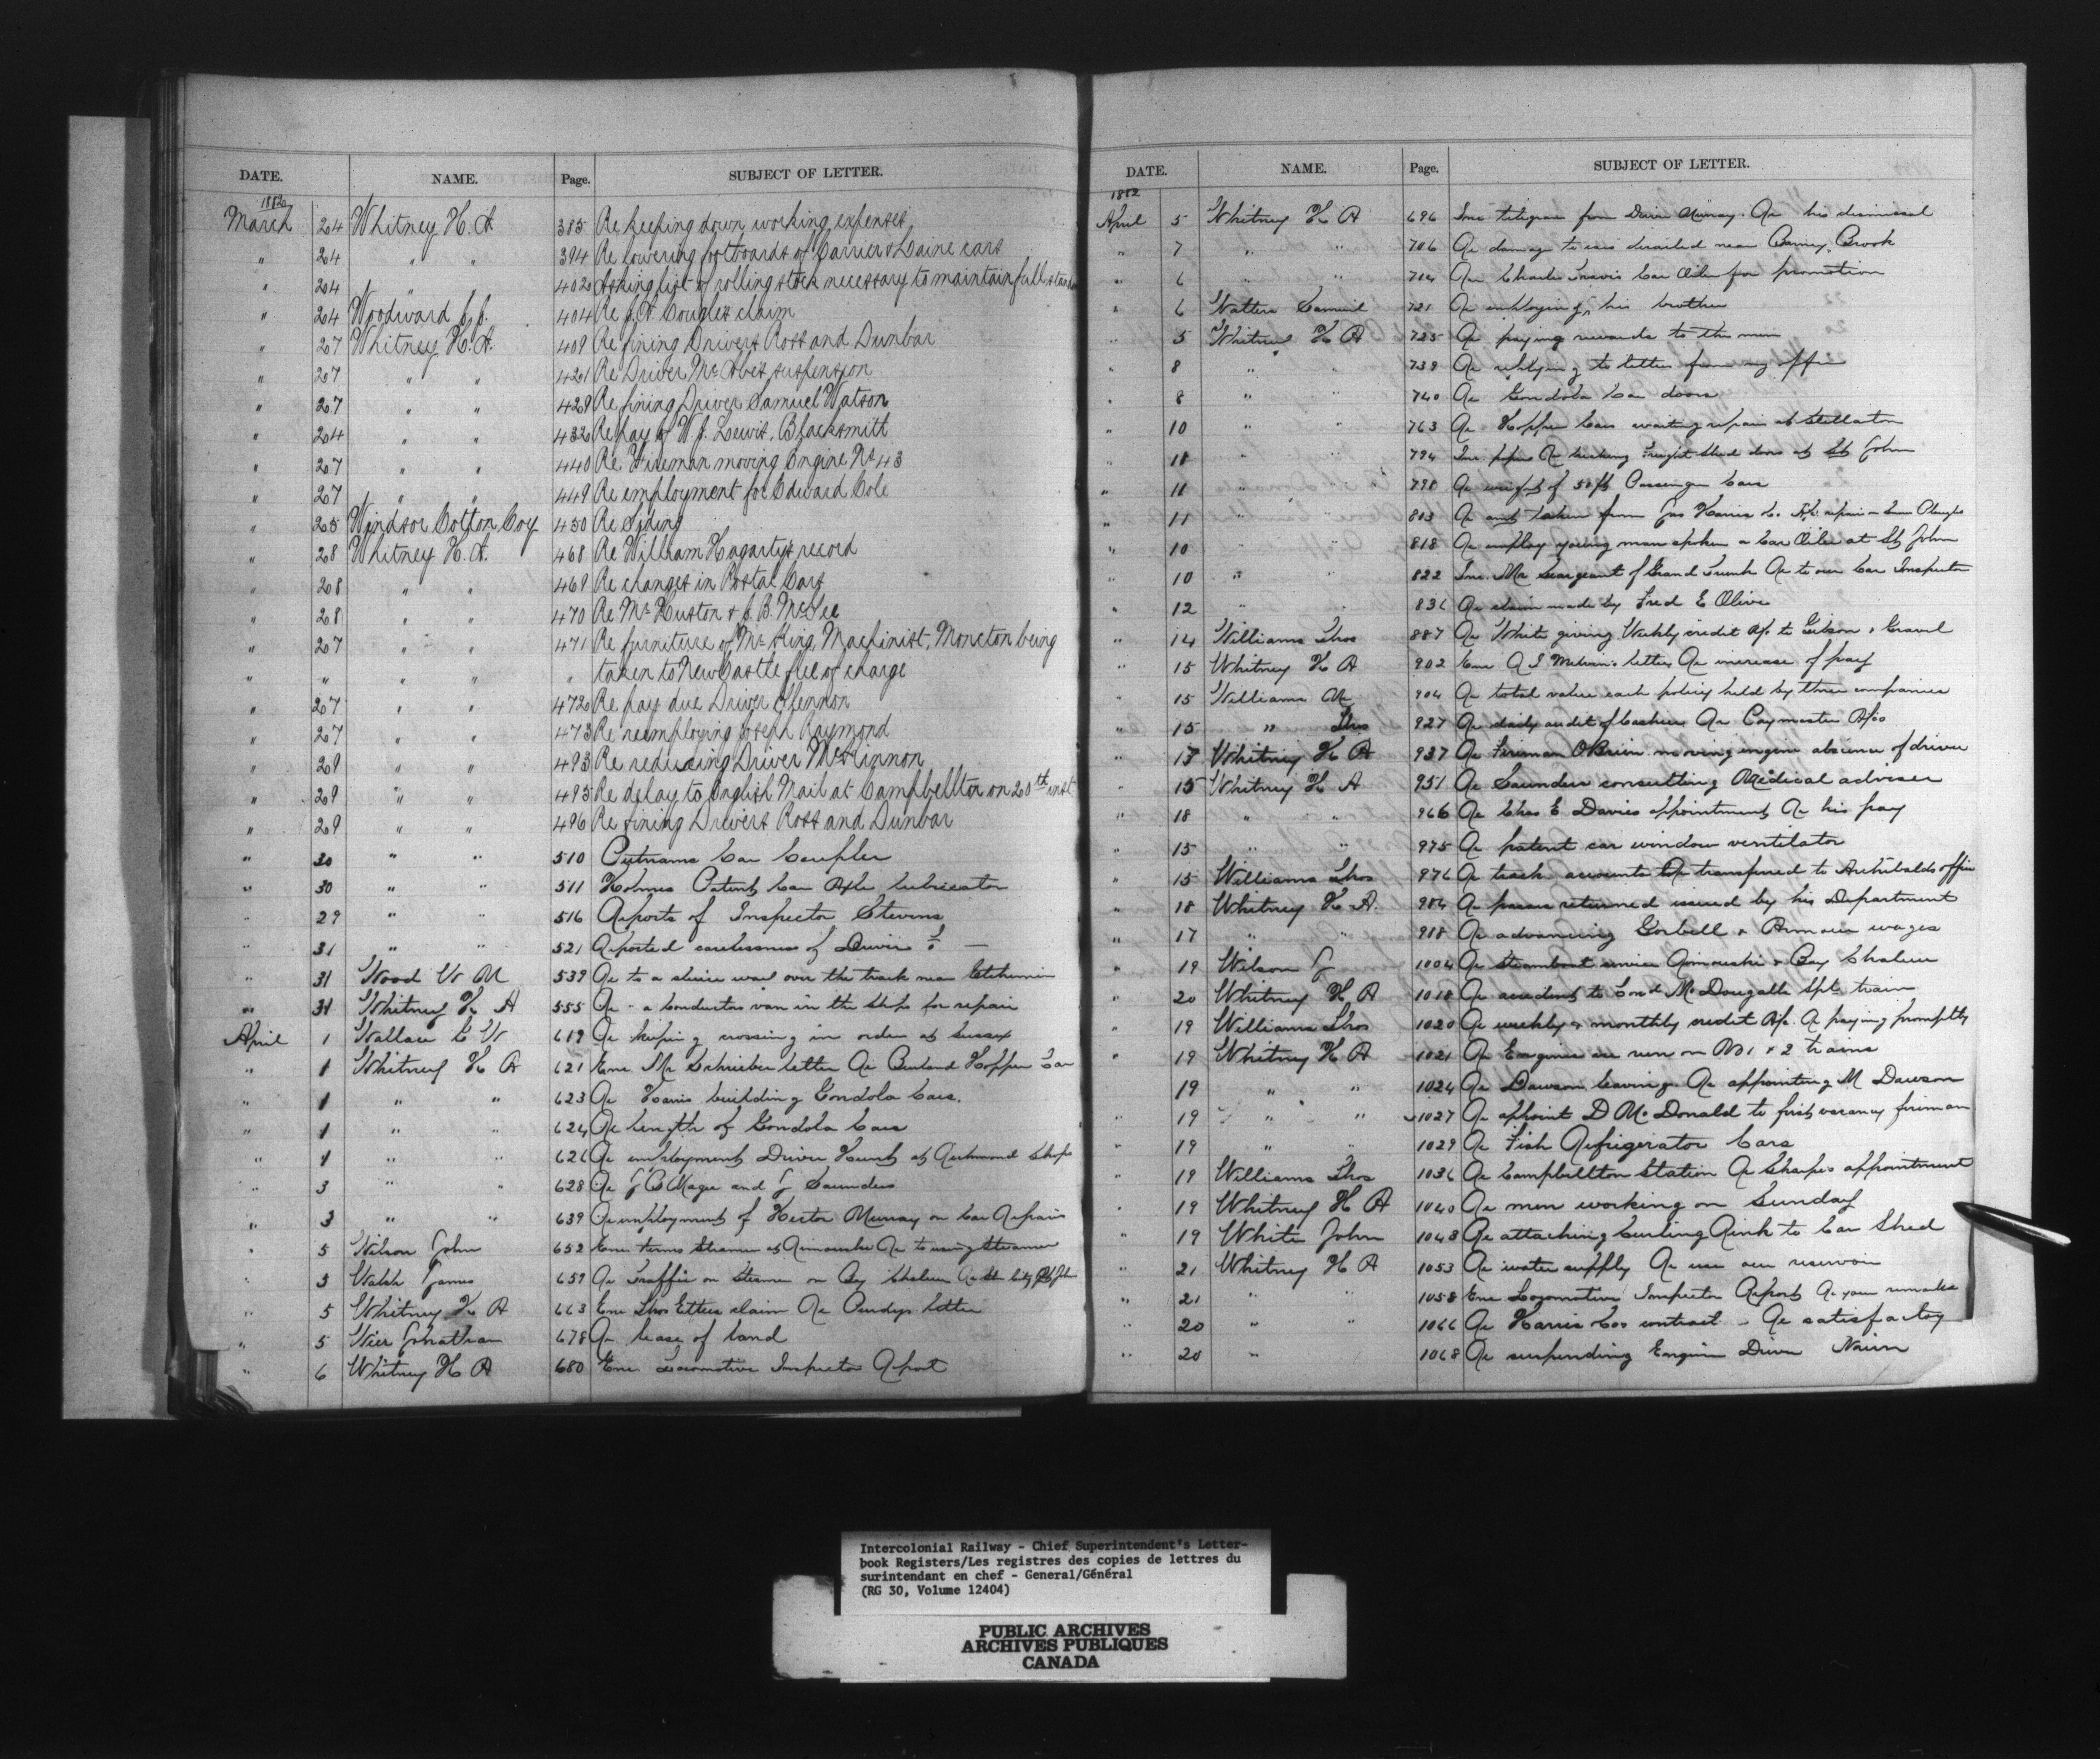 DATE. NAME. Page. SUBJECT OF LETTER.
1882
March 24 Whitney H. A 385 Re keeping down working expenses
" 24 " " 394 Re lowering footboards of Carrier & Laine cars
" 24 " " 402 Asking list of rolling stock necessary to maintain full
" 24 Woodward J. J. 404 Re J. A. claim
" 27 Whitney H. A. 409 Re fining Drivers Ross and Dunbar
" 27 " " 421 Re Driver suspension
" 27 " " 429 Re fining Driver Samuel Watson
" 24 " " 432 Re pay of W. J. Lewis, Blacksmith
" 27 " " 440 Re Fireman moving Engine No 43
" 27 " " 449 Re employment for Edward Cole
" 25 Windsor Cotton Coy 450 Re Siding
" 28 Whitney H. A. 468 Re William Hagarty's record
" 28 " " 469 Re changes in Postal Cars
" 28 " " 470 Re Mr Huston & J. B. McKee
" 27 " " 471 Re furniture of Mr King, Machinist, Moncton being
" " " " " taken to NewCastle free of charge
" 27 " " 472 Re pay due Driver Glennon
" 27 " " 473 Re reemploying Joseph Raymond
" 29 " " 493 Re reducing Driver McKinnon
" 29 " " 495 Re delay to English Mail at Campbellton on 20th inst
" 29 " " 496 Re fining Drivers Ross and Dunbar
" 30 " " 510 Putnams Car Coupler
" 30 " " 511 Holmes Patent Car Axle lubricator
" 29 " " 516 Reports of Inspector Stevens
" 31 " " 521 Reported carelessness of Driver
" 31 Wood W M 539 Re to a over the track near
" 31 Whitney H A 555 Re a Conductors van in the shops for repair
April 1 Wallace W 619 Re keeping crossing in order at Sussex
" 1 Whitney H A 621 Enc Mr Schrieber letter Re Hopper Car
" 1 " " 623 Re Harris building Gondola Cars.
" 1 " " 624 Re length of Gondola Cars
" 1 " " 626 Re employment Driver Hunt at Richmond Shops
" 3 " " 628 Re Magee and J Saunders
" 3 " " 639 Re employment of Hector Murray on Car Repairs
" 5 Wilson John 652 Enc terms Steamer at Rimouski Re to using Steamer
" 3 Walsh James 659 Re Traffic on Steamer on Bay Chaleur
" 5 Whitney H A 663 Enc Thos Etters claim Re Purdys letter
" 5 Wier Jonathan 678 Re lease of land
" 6 Whitney H A 680 Enc Locomotive Inspector Report
DATE. NAME. Page. SUBJECT OF LETTER.
1882
April 5 Whitney H A 696 Inc telegram from Driver Murray. Re his dismissal
" 7 " " 706 Re damage to cars derailed near Barney Brook
" 6 " " 714 Re Charles Travis Car Oiler for promotion
" 6 Watters Samuel 721 Re employing his brother
" 5 Whitney H A 725 Re paying rewards to the men
" 8 " " 739 Re replying to letters from my office
" 8 " " 740 Re Gondola Car doors
" 10 " " 763 Re Hopper Cars waiting repair at Stellarton
" 10 " " 794 Inc papers Re Freight Shed doors at St John
" 11 " " 798 Re weight of 50 ft Passenger Cars
" 11 " " 803 Re taken from Jas Harris Co. repairs
" 10 " " 818 Re employ young man spoken a Car Oiler at St John
" 10 " " 822 Inc Mr Seargeant of Grand Trunk Re to our Car Inspector
" 12 " " 836 Re claim made by Fred E Olive
" 14 Williams Thos 887 Re White giving Weekly credit a/c to Gibson &
" 15 Whitney H A 902 Enc letter Re increase of pay
" 15 Williams 904 Re total value each policy held by three companies
" 15 " Thos 927 Re daily audit of Cashier Re Paymaster
" 13 Whitney H A 937 Re Fireman O'Brien moving engine absence of driver
" 15 Whitney H A 951 Re Saunders consulting Medical adviser
" 18 " " 966 Re Chas E Davies appointment Re his pay
" 15 " " 975 Re patent car window ventilator
" 15 Williams Thos 976 Re track accounts transferred to Archibalds office
" 18 Whitney H A. 984 Re passes returned issued by his Department
" 17 " " 988 Re advancing Gorbell & wages
" 19 Wilson J 1004 Re Steamboat service Rimouski & Bay Chaleur
" 20 Whitney H A 1018 Re accident to Cond McDougalls Spl train
" 19 Williams Thos 1020 Re weekly & monthly credit a/c Re paying promptly
" 19 Whitney H A 1021 Re Engines we run on No 1 & 2 trains
19 " " 1024 Re Dawson leaving. Re appointing M Dawson
" 19 " " 1027 Re appoint D McDonald to first vacancy fireman
" 19 " " 1029 Re Fish Refrigerator Cars
" 19 Williams Thos 1036 Re Campbellton Station Re Sharpes appointment
" 19 Whitney H A 1040 Re men working on Sunday
" 19 White John 1043 Re attaching Curling Rink to Car Shed
" 21 Whitney H A 1053 Re water supply Re use our reservoir
" 21 " " 1058 Enc Locomotive Inspector Report Re your remarks
" 20 " " 1066 Re Harris Cos contract - Re satisfactory
" 20 " 1068 Re suspending Engine Driver Nairn
Intercolonial Railway - Chief Superintendent's Letter-
book Registers/Les registres des copies de lettres du
surintendant en chef - General/Général
(RG 30, Volume 12404)
PUBLIC ARCHIVES
ARCHIVES PUBLIQUES
CANADA